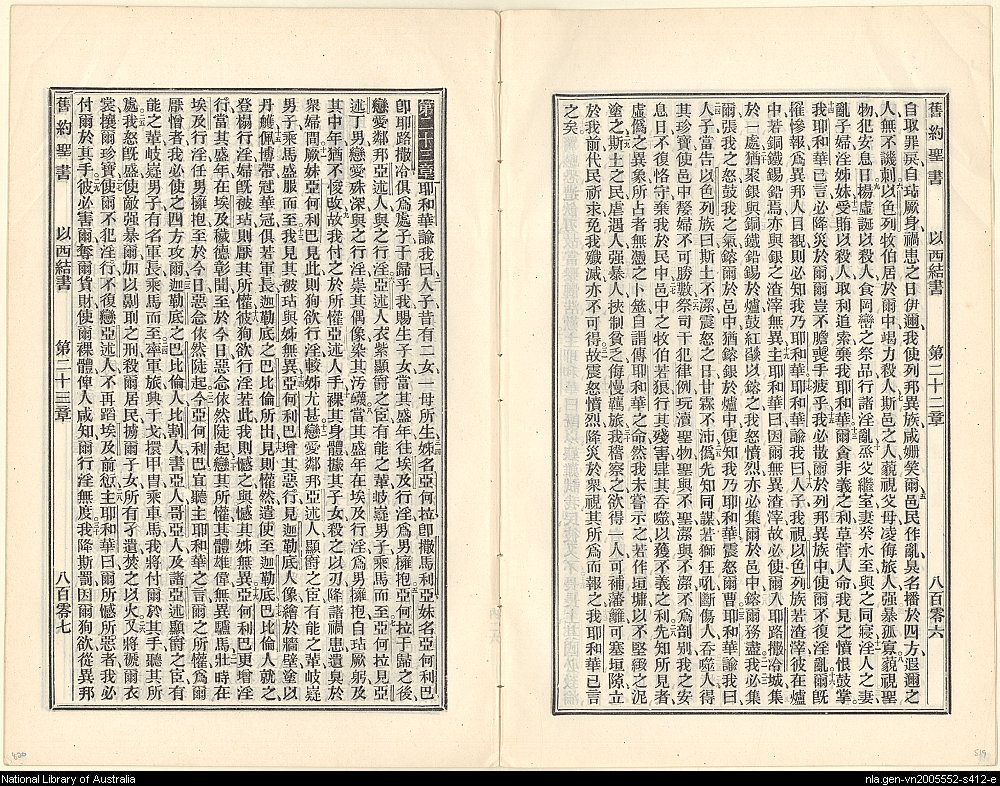 舊約聖書 以西結書 第二十二章 八百零六
自取罪戾自玷厥身禍患之日伊邇我使列邦異族咸姗笑爾邑民作亂臭名播於四方遐邇之
人無不譏刺以色列牧伯居於爾中竭力殺人斯邑之人藐視父母凌侮旅人強暴孤寡藐視聖
物犯安息日揚虛誕以殺人食岡巒之祭品行諸淫亂烝父繼室妻癸水至與之同寢淫人之妻
亂子婦淫姊妹受賄以殺人取利追索棄我耶和華爾貪非義之利草菅人命我見之憤恨鼓掌
我耶和華已言必降災於爾爾豈不膽喪手疲乎我必散爾於列邦異族中使爾不復淫亂爾旣
罹慘報為異邦人目覩則必知我乃耶和華耶和華諭我曰人子我視以色列族若渣滓彼在爐
中若銅鐵錫鉛焉亦與銀之渣滓無異主耶和華曰因爾無異渣滓故必使爾入耶路撒冷城集
於一處猶聚銀與銅鐵鉛錫於爐鼓紅燄以鎔之我怒憤烈亦必集爾於邑中鎔爾務盡我必集
爾張我之怒鼓我之氣鎔爾於邑中猶鎔銀於爐中使知我乃耶和華震怒爾曹耶和華諭我曰
人子當告以色列族曰斯土不潔震怒之日甘霖不沛偽先知同謀若獅狂吼斷傷人吞噬人得
其珍寶使邑中嫠婦不可勝數祭司干犯律例玩瀆聖物聖與不聖潔與不潔不為剖別我之安
息日不復恪守棄我於民中邑中之牧伯若狼行其殘害肆其吞噬以獲不義之利先知所見者
虛偽之異象所占者無憑之卜筮自謂傳耶和華之命然我未嘗示之若作垣墉以不堅緻之泥
塗之斯土之民虐遇人強暴人挾制貧乏侮慢羈旅我稽察之欲得一人可補藩籬可塞垣隙立
於我前代民祈求免我殲滅亦不可得故震怒憤烈降災於衆視其所為而報之我耶和華已言
之矣
第二十三章 耶和華諭我曰人子昔有二女一母所生姊名亞何拉卽撒馬利亞妹名亞何利巴
卽耶路撒冷俱為處子于歸乎我賜生子女當其盛年往埃及行淫為男擁抱亞何拉于歸之後
戀愛鄰邦亞述人與之行淫亞述人衣紫顯爵之臣有能之輩岐嶷男子乘馬而至亞何拉見亞
述丁男戀愛殊深與之行淫崇其偶像染其汚衊當其盛年在埃及行淫為男擁抱自玷厥躬及
其中年猶不悛改故我付之於所懽亞述人手裸其身體擄其子女殺之以刃降諸禍患遺臭於
衆婦間厥妹亞何利巴見此則狥欲行淫較姊尤甚戀愛鄰邦亞述人顯爵之臣有能之輩岐嶷
男子乘馬盛服而至我見其被玷與姊無異亞何利巴增其惡行見迦勒底人像繪於牆壁塗以
丹雘佩博帶冠華冠俱若軍長迦勒底之巴比倫所出見則懽然遣使至迦勒底巴比倫人就之
登榻行淫婦旣被玷則厭其所懽彼狥欲行淫若此我則憾之與憾其姊無異亞何利巴更增淫
行當其盛年在埃及穢德彰聞至於今日惡念依然陡起戀其所懽其體雄偉無異驢馬壯時在
埃及行淫任男擁抱至於今日惡念依然陡起今亞何利巴宜聽主耶和華之言爾之所懽為爾
厭憎者我必使之四方攻爾迦勒底之巴比倫人比割人書亞人哥亞人及諸亞述顯爵之臣有
能之輩岐嶷男子有名軍長乘馬而至率軍旅興干戈擐甲冑乘車馬我將付爾於其手聽其所
處我怒旣盛使敵強暴爾加以劓刵之刑殺爾居民擄爾子女所有孑遺焚之以火又將褫爾衣
裳攘爾珍寶使爾不犯淫行不復戀亞述人不再蹈埃及前愆主耶和華曰爾所憾所惡者我必
付爾於其手彼必害爾奪爾貨財使爾裸體俾人咸知爾行淫無度我降斯罰因爾狥欲從異邦
舊約聖書 以西結書 第二十三章 八百零七
820
819
National Library of Australia
nla.gen-vn2005552-s412-e